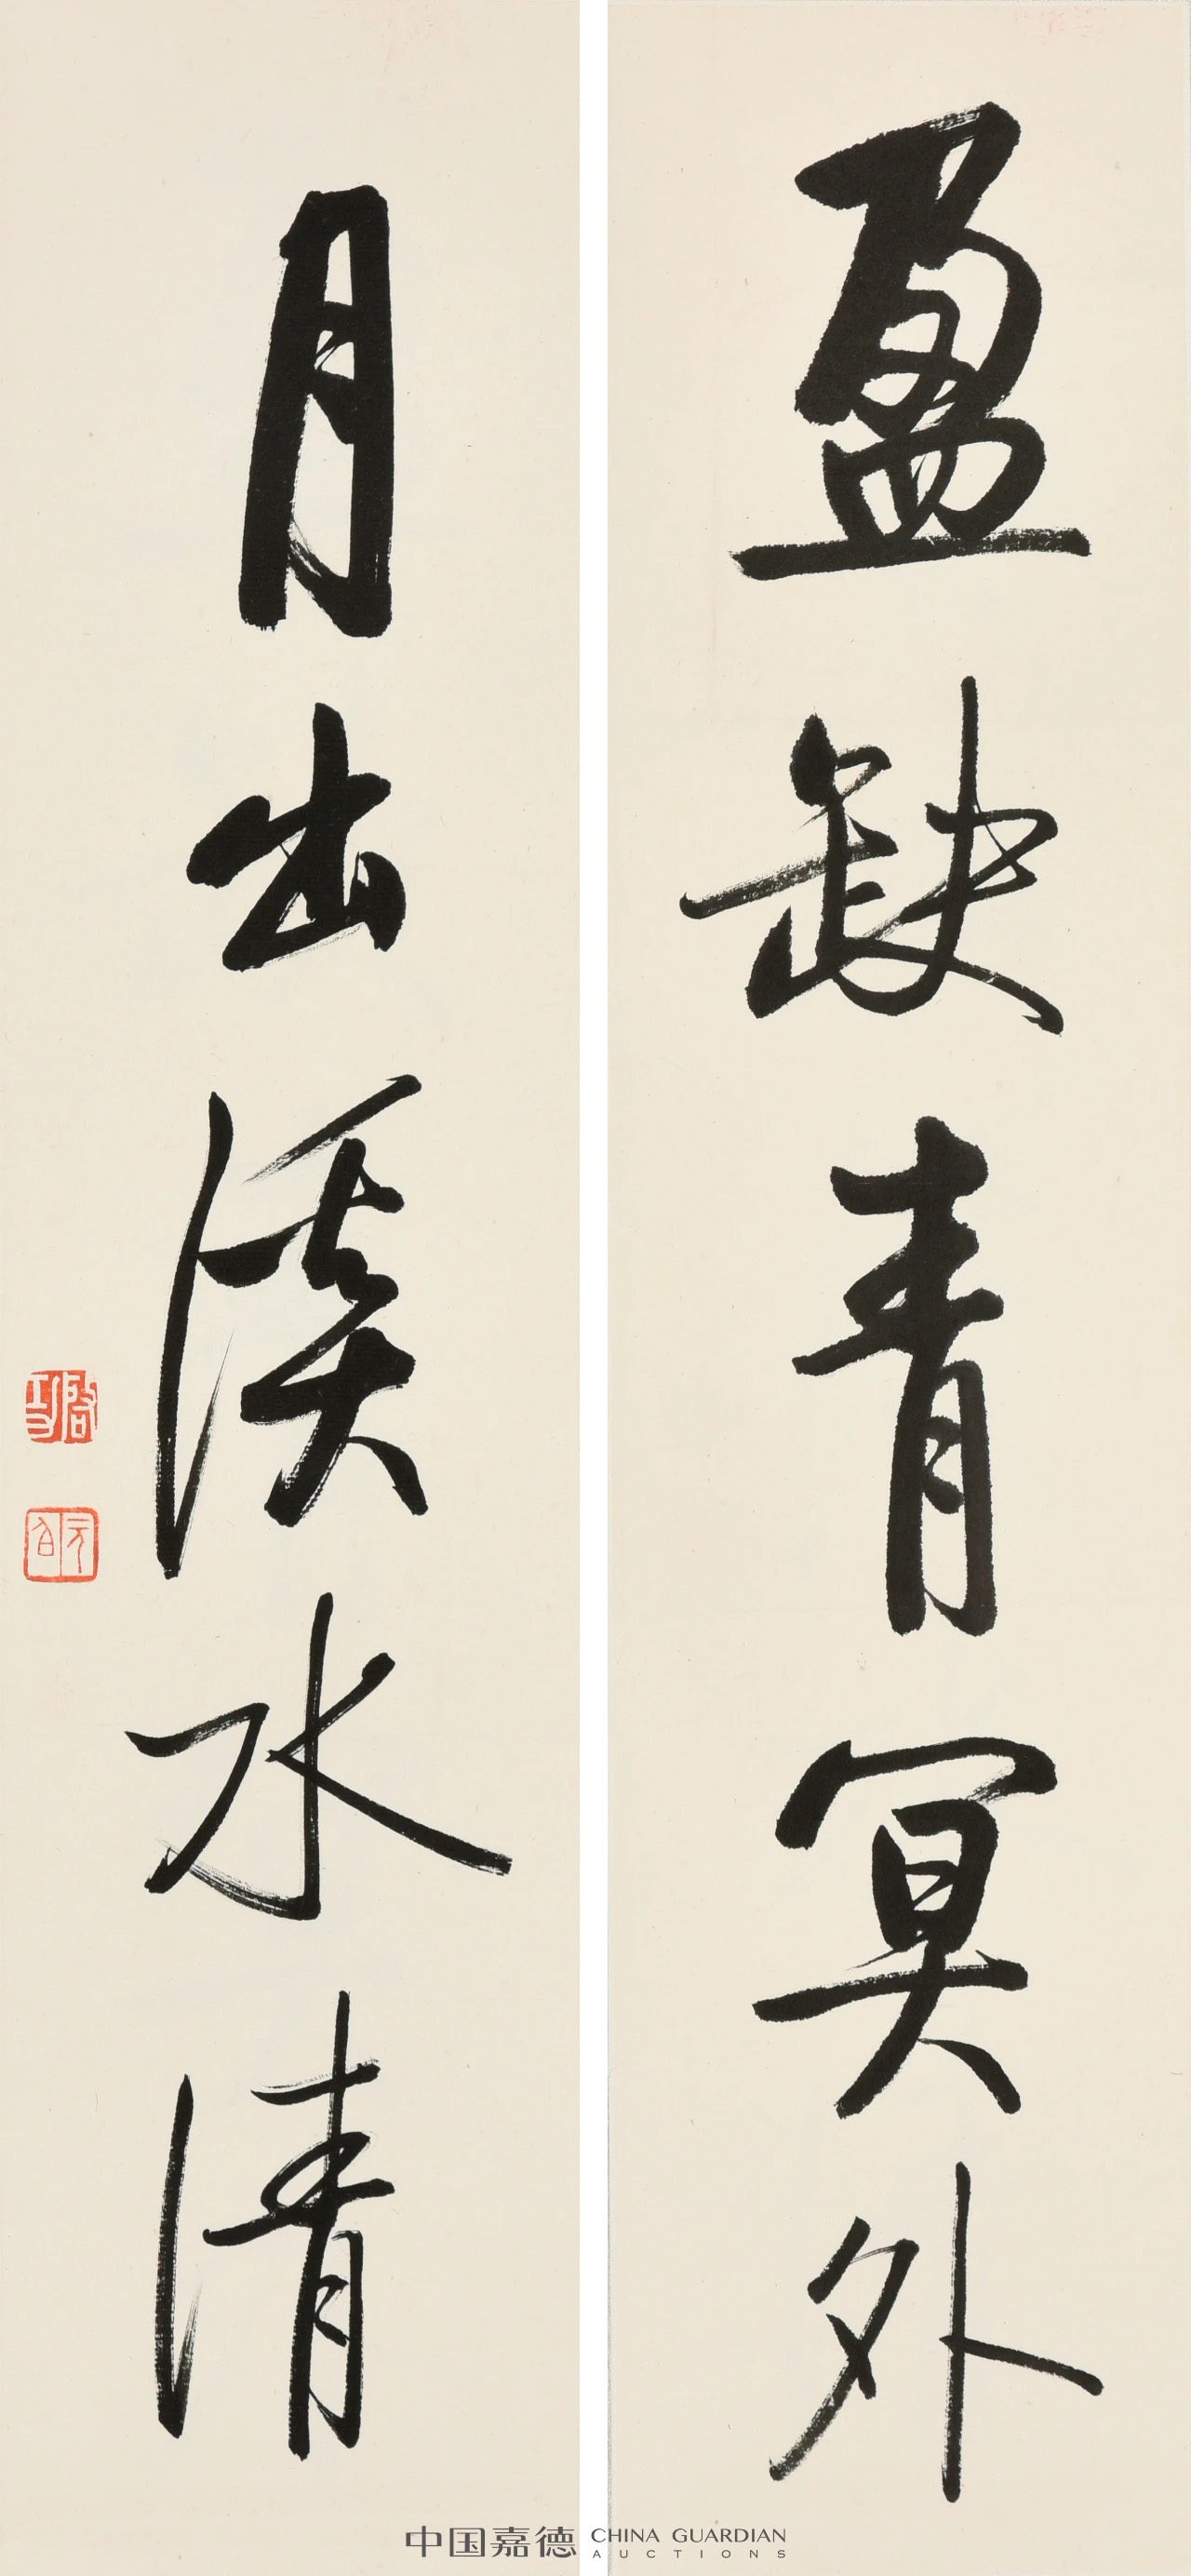 盈缺青冥外
月出溪水清
启功
元白
中国嘉德 CHINA GUARDIAN
AUCTIONS